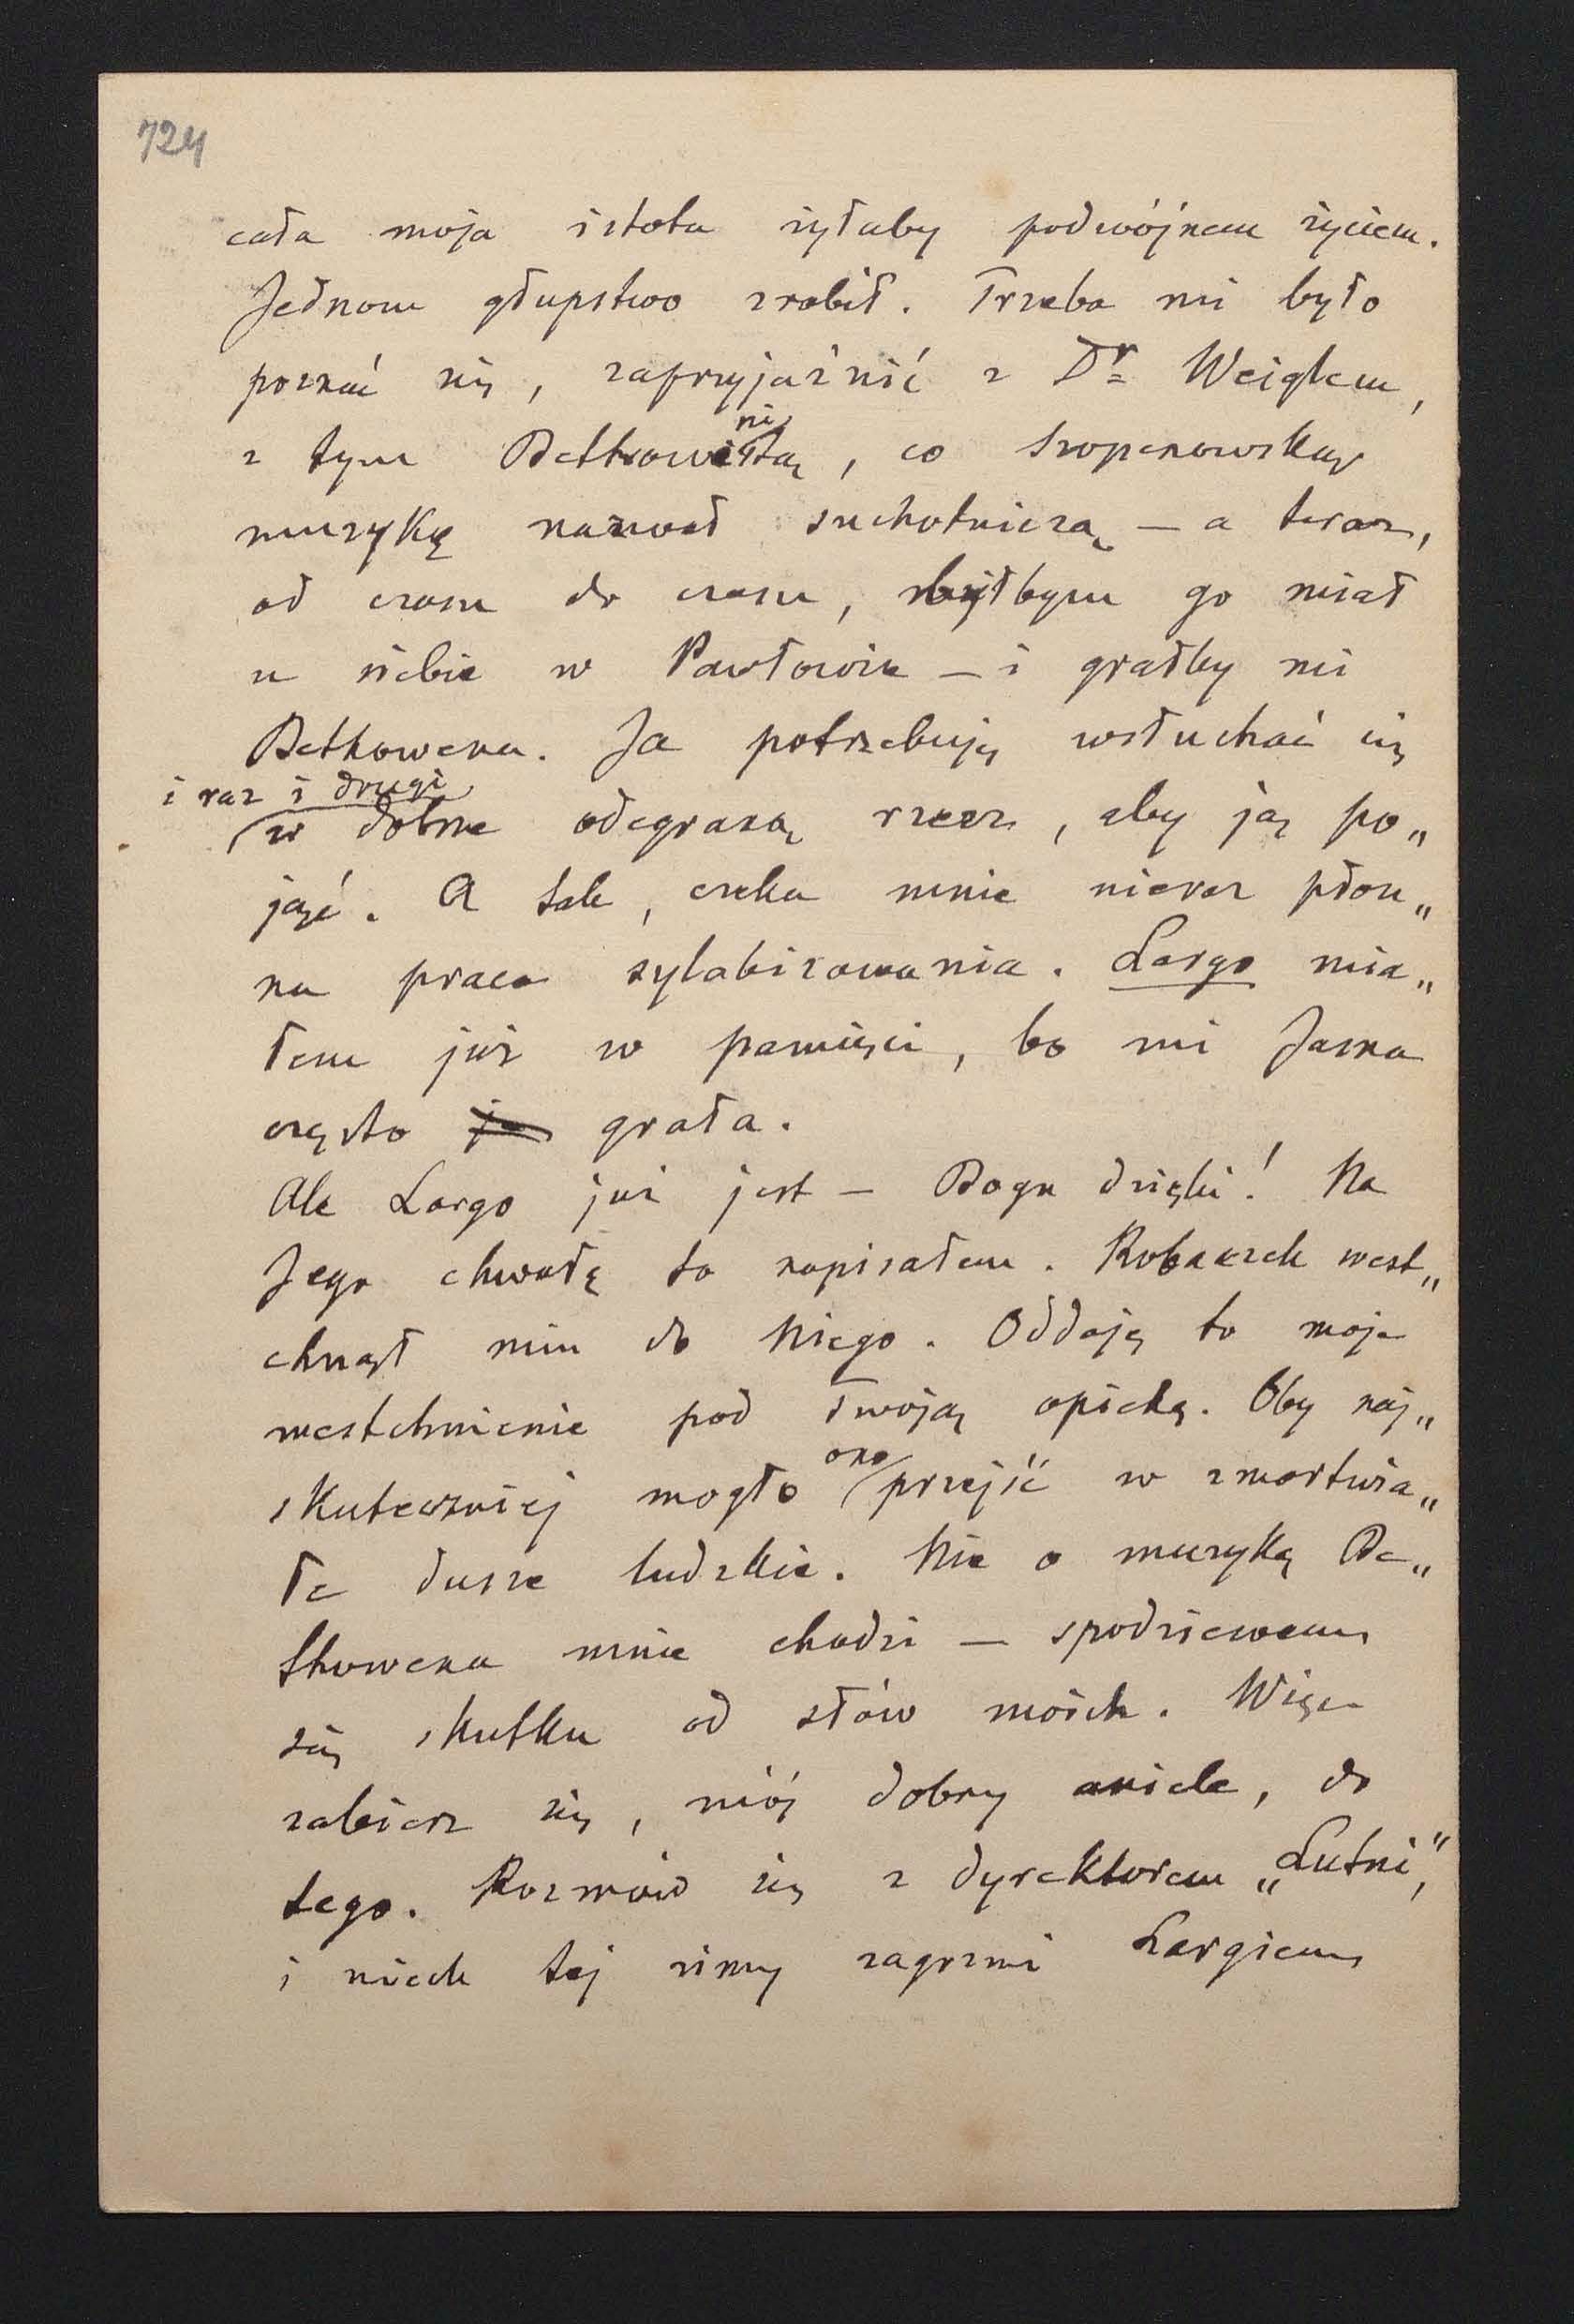 724
cała moja istota żyłaby podwójnem życiem.
Jednom głupstwo zrobił. Trzeba mi było
poznać się, zaprzyjaźnić z Dr Weiglem,
ni
z tym Bethowenistą, co szopenowską
muzykę nazwał suchotniczą — a teraz,
od czasu do czasu, byłbym go miał
u siebie w Pawłowie — i grałby mi
Bethowena. Ja potrzebuję wsłuchać się
i raz i drugi
w dobrze odegraną rzecz, aby ją po„
jąć. A tak, czeka mnie nieraz płon„
na praca sylabizowania. Largo mia„
łem już w pamięci, bo mi Janka
często grała.
Ale Largo już jest — Bogu dzięki! Na
Jego chwałę to napisałem. Robaczek west„
chnął nim do Niego. Oddaję to moje
westchnienie pod Twoją opiekę. Oby naj„
skuteczniej mogło ono przejść w zmartwia„
łe dusze ludzkie. Nie o muzykę Be„
thowena mnie chodzi — spodziewam
się skutku od słów moich. Więc
zabierz się, mój dobry aniele, do
tego. Rozmów się z dyrektorem „Lutni",
i niech tej zimy zagrzmi Largiem